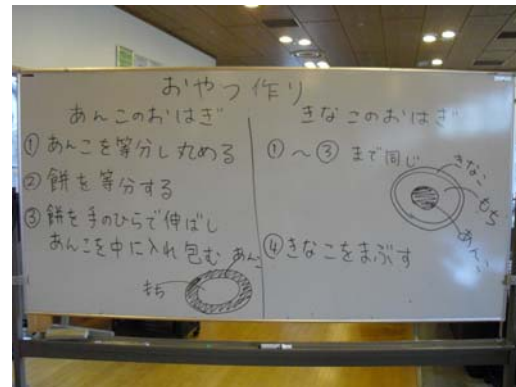 おやつ作り
あんこのおはぎ
① あんこを等分し丸める
② 餅を等分する
③ 餅を手のひらで伸ばし
あんこを中に入れ包む
あんこ
もち
きなこのおはぎ
①〜③まで同じ
きなこ
もち
あんこ
④きなこをまぶす